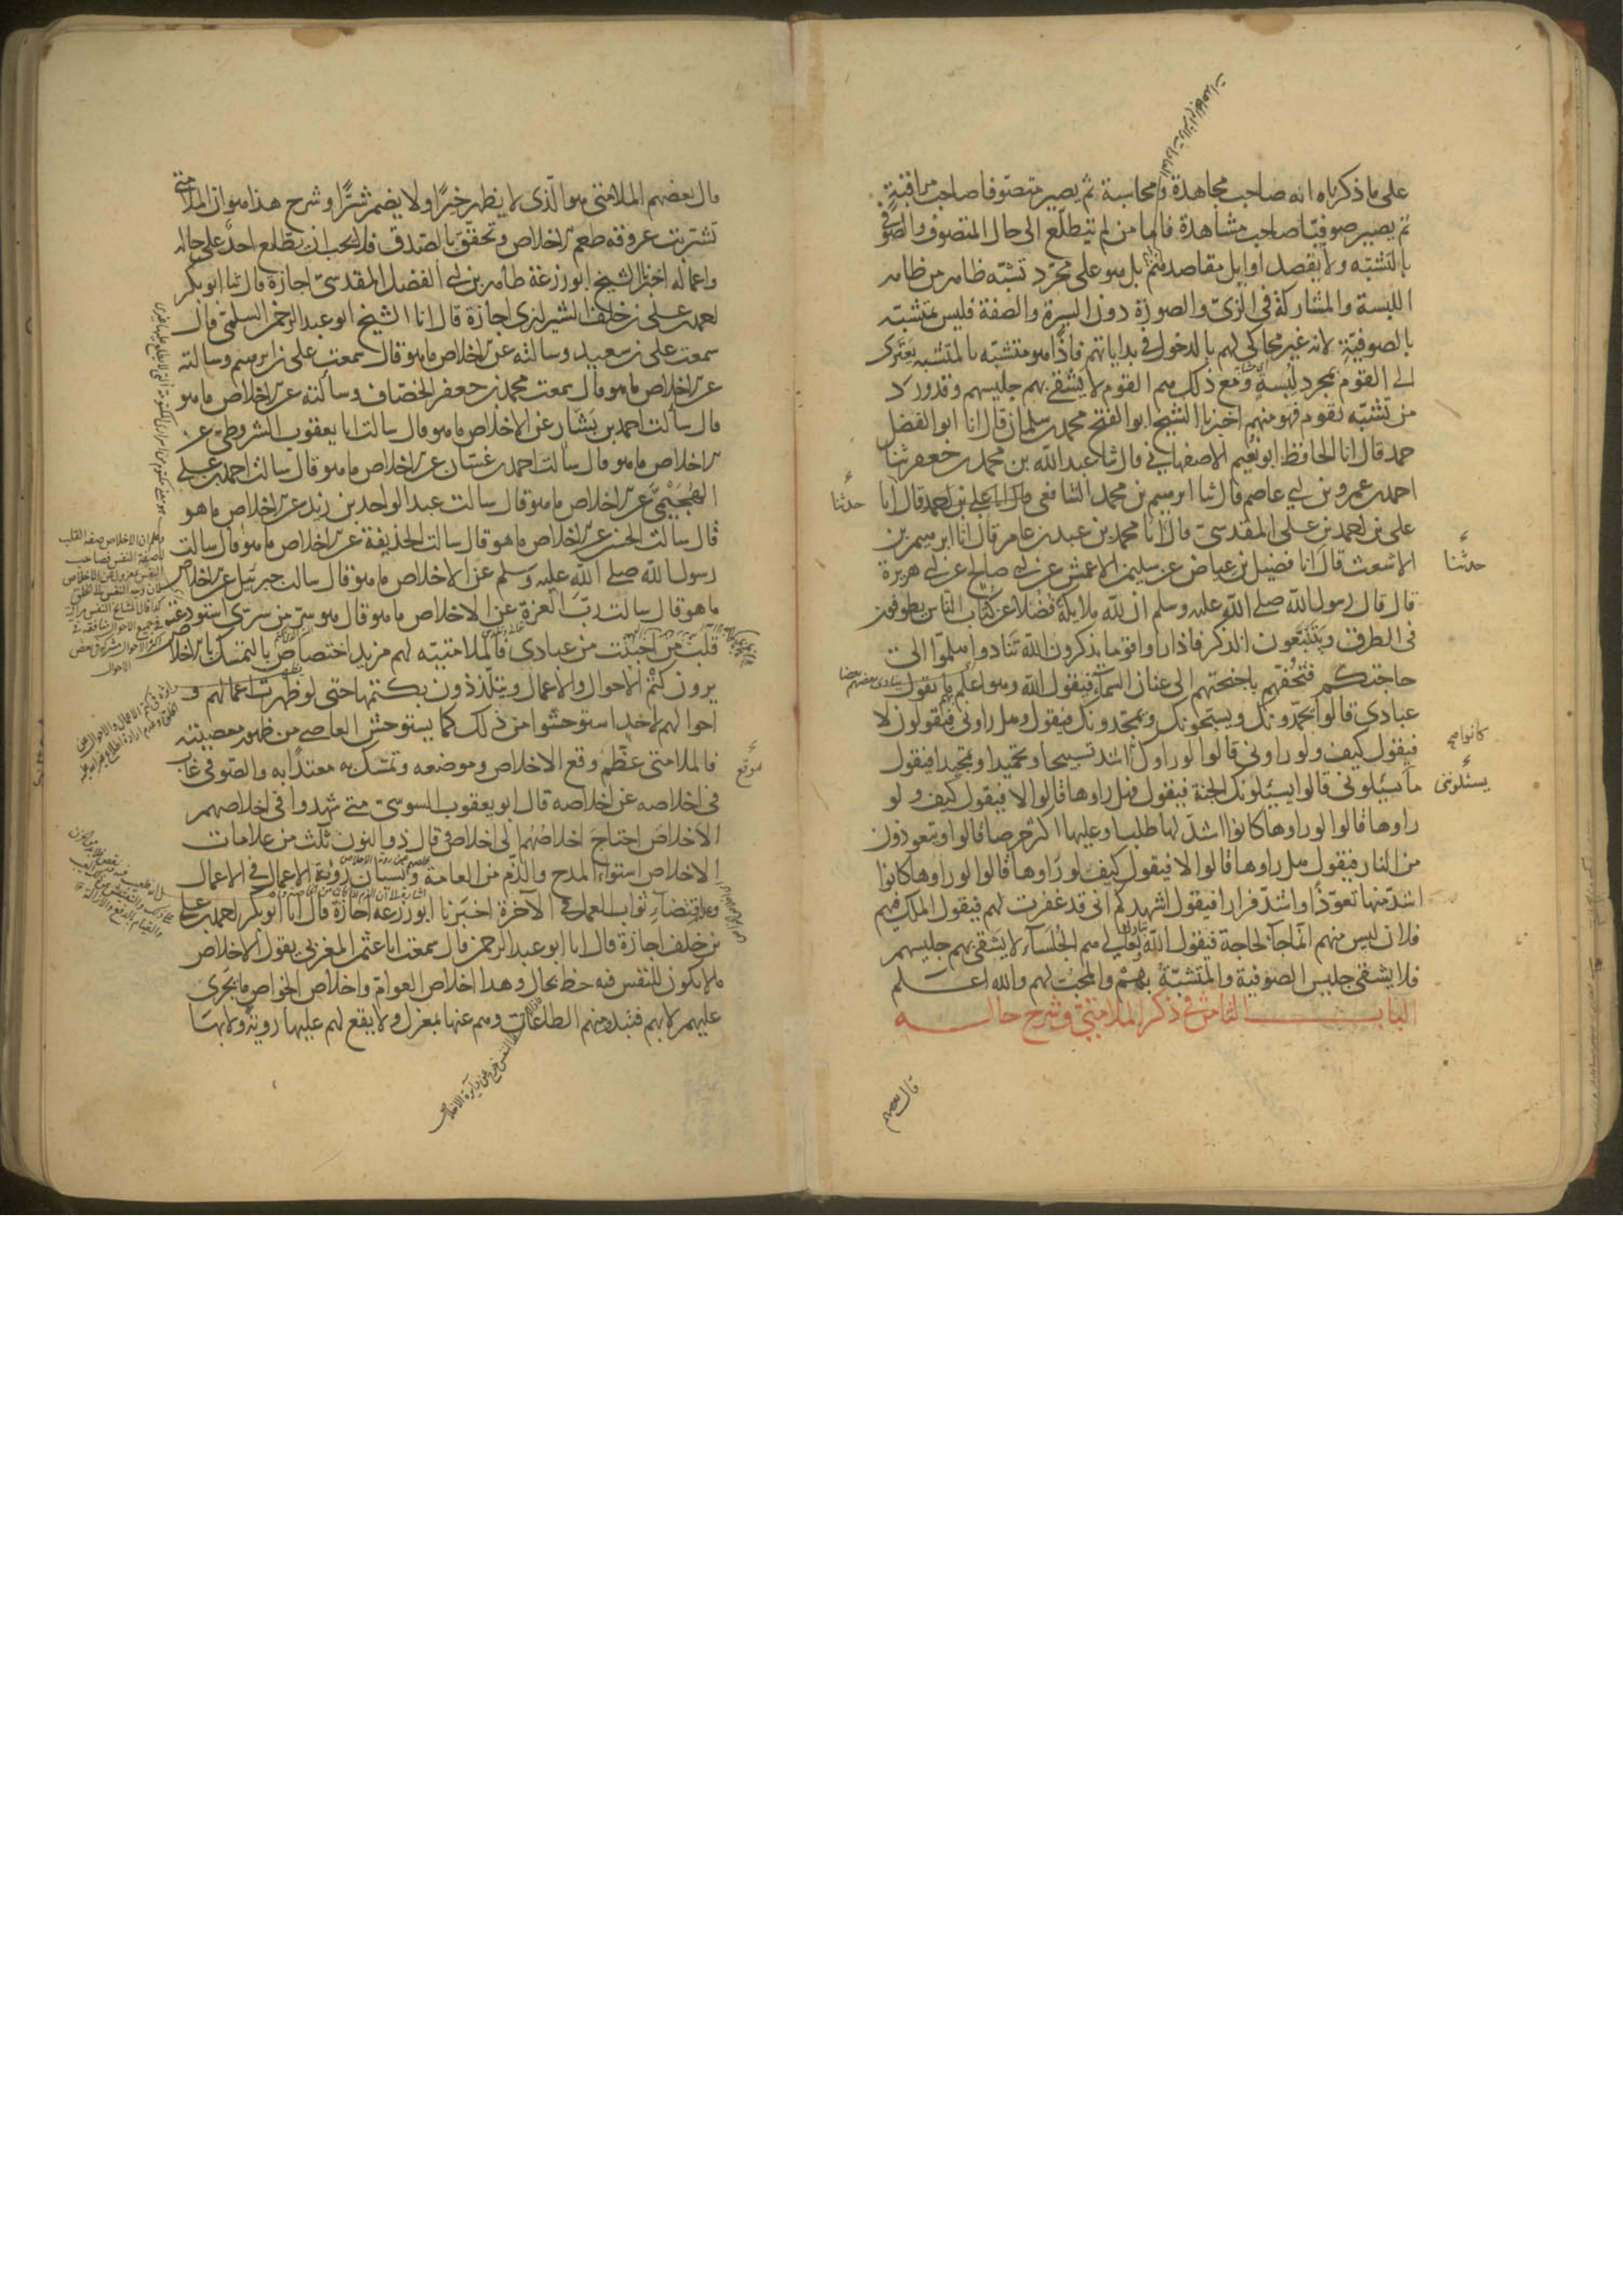 على ما ذكرناه انه صاحب مجاهدة ومحاسبة ثم يصير متصوفا صاحب مراقبة
ثم يصير صوفيّا صاحب مشاهدة فاما من لم يتطلّع الى حال المتصوف والصوفى
بالتشبّه ولا يقصد اوايل مقاصدهم بل هو على مجرّد تشبّه ظاهر من ظاهر
اللبسة والمشاركة فى الزىّ والصورة دون السيرة والصفة فليس بمتشبّه
بالصوفيّة لانه غير محاكى لهم بالدخول فى بداياتهم فاذًا هو متشبّه بالمتشبه يعتزى
الى القوم بمجرد لبسة ومع ذلك هم القوم لا يشقى بهم جليسهم وقد ورد
من تشبّه بقوم فهو منهم اخبرنا الشيخ ابو الفتح محمد بن سلمان قال انا ابو الفضل
حمد قال انا الحافظ ابو نعيم الاصفهانى قال ثنا عبد الله بن محمد بن جعفر ثنا
احمد بن عمرو بن ابى عاصم قال ثنا ابرهيم بن محمد الشافعى قال انا على بن احمد قال انا
حدثنا
على بن احمد بن على المقدسىّ قال انا محمد بن عبد بن عامر قال انا ابرهيم بن
الاشعث قال انا فضيل بن عياض عن سليمن الاعمش عن ابى صالح عن ابى هريرة
حدثنا
قال قال رسول الله صلى الله عليه وسلم ان لله ملايكة فضلا عن كتّاب الناس يطوفون
فى الطرق ويتتبّعون الذكر فاذا راوا قوما يذكرون الله تنادوا هلمّوا الى
حاجتكم فتحفّهم باجنحتهم الى عنان السماء فيقول الله وهو اعلم ما يقول
ينادى بعضهم بعضا
عبادى قالوا يحمّدونك ويسبّحونك ويمجّدونك فيقول وهل راونى فيقولون لا
فيقول كيف ولو راونى قالوا لو راوك اشد تسبيحا وتحميدا وتمجيدا فيقول
كانوا صح
ما يسئلونى قالوا يسئلونك الجنة فيقول فهل راوها قالوا لا فيقول كيف ولو
يسئلوننى
راوها قالوا لو راوها كانوا اشدّ لها طلبا وعليها اكثر حرصا قالوا ويتعوذون
من النار فيقول هل راوها قالوا لا فيقول كيف لو راوها قالوا لو راوها كانوا
اشدّ منها تعوّذًا واشدّ فرارا فيقول اشهدكم انى قد غفرت لهم فيقول الملك فيهم
فلان ليس منهم انّما جآ لحاجة فيقول الله تعالى هم الجلسآء لا يشقى بهم جليسهم
فلا يشقى جليس الصوفية والمتشبّه بهم والمحبّ لهم والله اعلم
الباب الثامن فى ذكر الملامتى وشرح حاله
قال بعضهم
قال بعضهم الملامتى هو الّذى لا يظهر خيرًا ولا يضمر شرًّا وشرح هذا هو ان الملامتى
تشربت عروقه طعم الاخلاص وتحقّق بالصدق فلا يحب ان يطّلع احدٌ على حاله
واعماله اخبرنا الشيخ ابو زرعة طاهر بن ابى الفضل المقدسىّ اجازة قال ثنا ابو بكر
احمد بن على بن خلف الشيرازى اجازة قال انا الشيخ ابو عبد الرحمن السلمى قال
سمعت على بن سعيد وسالته عن الاخلاص ما هو قال سمعت على بن ابرهيم وسالته
عن الاخلاص ما هو قال سمعت محمد بن جعفر الخصّاف وسألته عن الاخلاص ما هو
قال سألت احمد بن بشّار عن الاخلاص ما هو قال سالت ابا يعقوب الشروطىّ عن
الاخلاص ما هو قال سالت احمد بن غسّان عن الاخلاص ما هو قال سالت احمد بن على
الهجيمىّ عن الاخلاص ما هو قال سالت عبد الواحد بن زيد عن الاخلاص ما هو
قال سألت الحسن عن الاخلاص ما هو قال سالت الحذيفة عن الاخلاص ما هو قال سالت
رسول الله صلى الله عليه وسلم عن الاخلاص ما هو قال سالت جبرئيل عن الاخلاص
ما هو قال سالت ربّ العزة عن الاخلاص ما هو قال هو سرّ من سرّى استودعته
قلب من احببت من عبادى فالملامتيّه لهم مزيد اختصاص بالتمسك بالاخلاص
يرون كتم الاحوال والاعمال ويتلذّذون بكتمها حتى لو ظهرت اعمالهم و
احوالهم لاحد استوحشوا من ذلك كما يستوحش العاصى من ظهور معصيته
فالملامتى عظّم وقع الاخلاص وموضعه وتمسّك به معتدّا به والصوفى غاب
موقع
فى اخلاصه عن اخلاصه قال ابو يعقوب السوسىّ متى شهدوا فى اخلاصهم
الاخلاص احتاج اخلاصهم الى اخلاص قال ذو النون ثلث من علامات
الاخلاص استواء المدح والذّم من العامة ونسيان رؤية الاعمال فى الاعمال
واقتضآء ثواب العمل فى الآخرة اخبرنا ابو زرعه اجازة قال انا ابو بكر احمد بن على
بن خلف اجازة قال انا ابو عبد الرحمن قال سمعت ابا عثمن المغربى يقول الاخلاص
ما لا يكون للنفس فيه حظ بحال وهذا اخلاص العوامّ واخلاص الخواص ما يجرى
عليهم لا بهم فتبدو منهم الطاعات وهم عنها بمعزل ولا يقع لهم عليها رويةٌ ولا بها